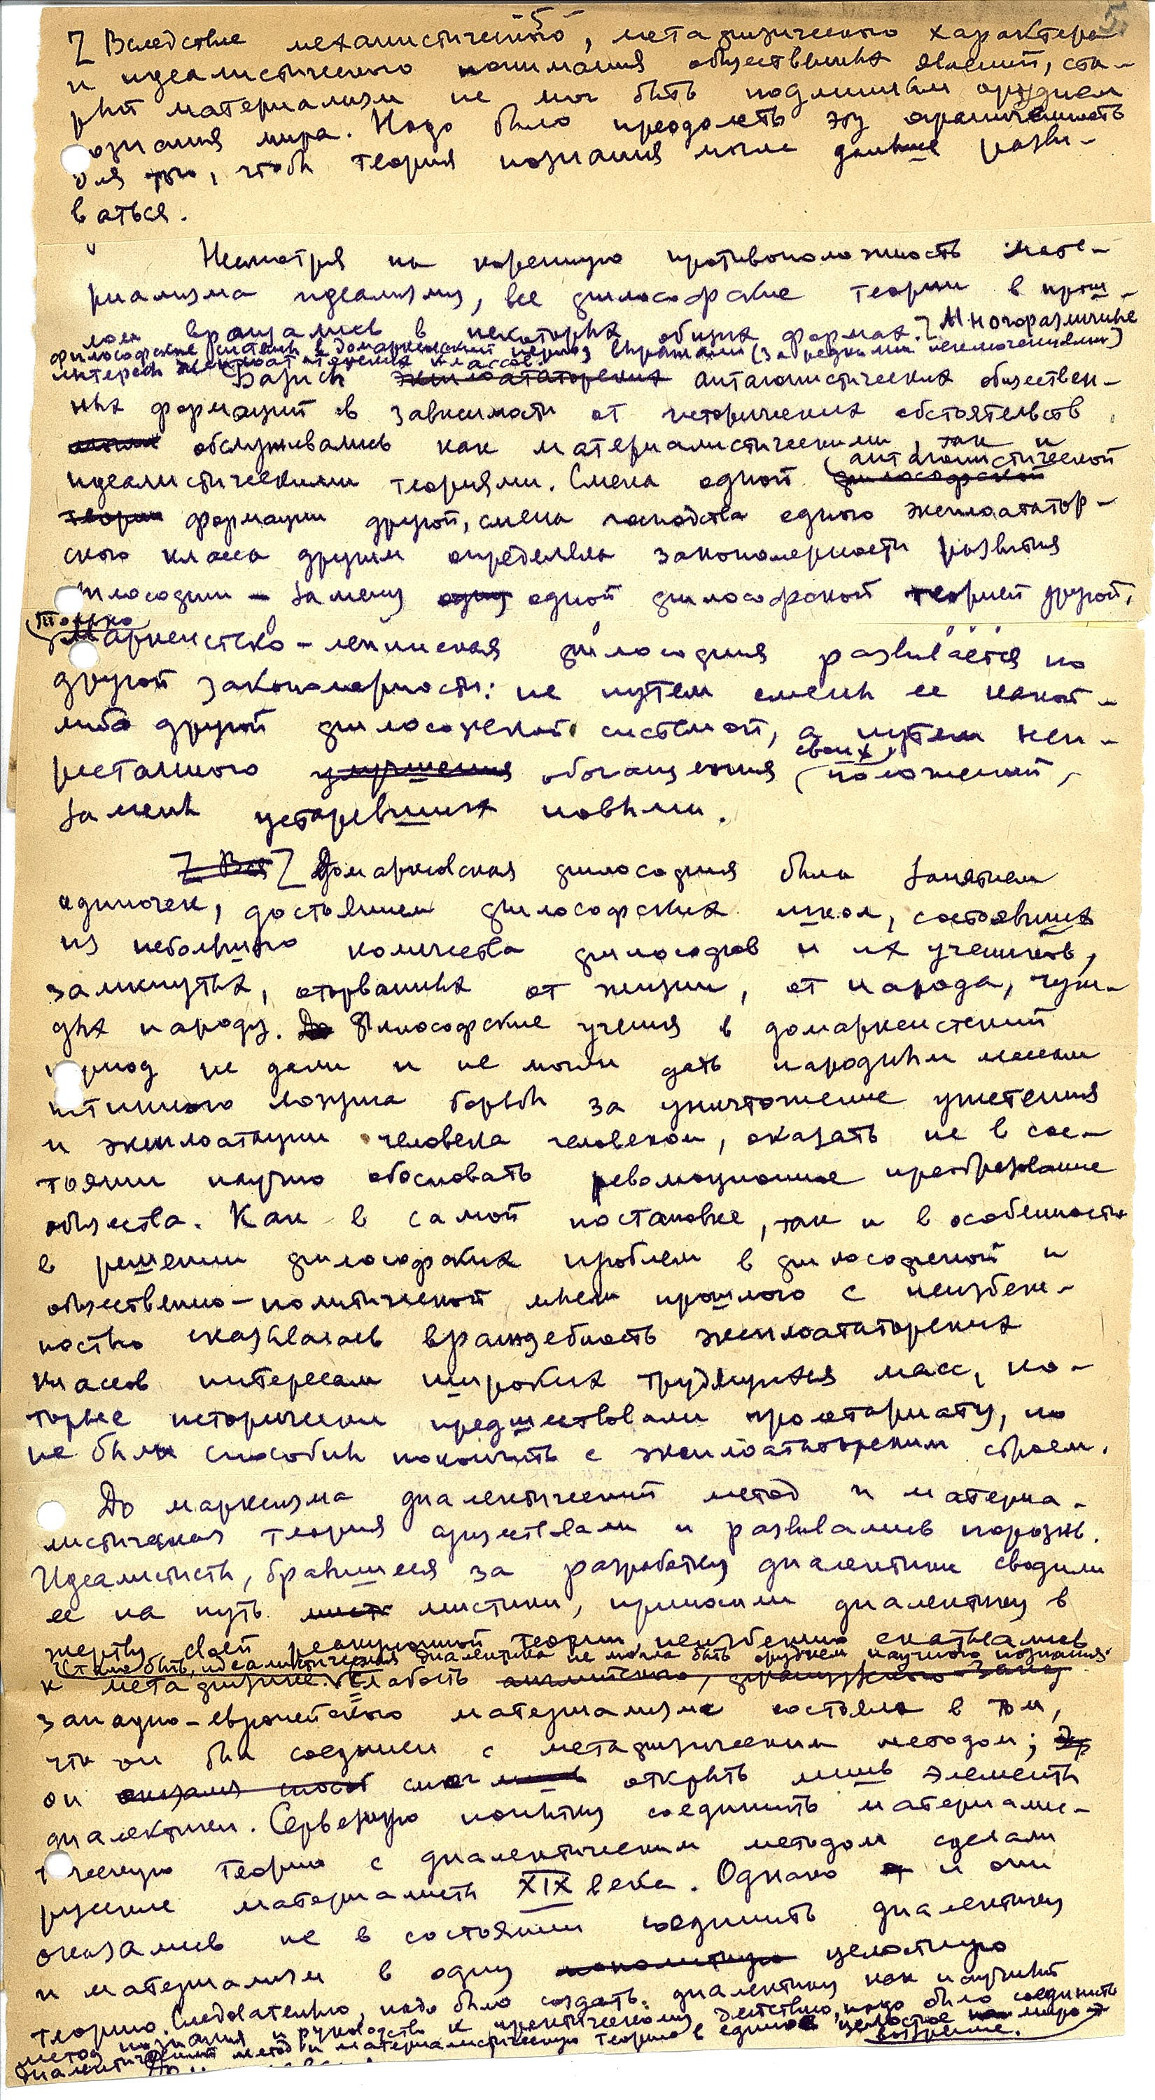 - 5 -
5.
Z Вследствие механистического, метафизического характера
и идеалистического понимания общественных явлений, ста-
рый материализм не мог быть подлинным орудием
познания мира. Надо было преодолеть эту ограниченность
для того, чтобы теория познания могла дальше разви-
ваться.
Несмотря на коренную противоположность мате-
риализма идеализму, все философские теории в прош-
лом вращались в некоторых общих формах. Z Многоразличные
философские системы в домарксистский период выражали (за редкими исключениями)
интересы эксплоататорских классов.
Базисы эксплоататорских антагонистических обществен-
ных формаций в зависимости от исторических обстоятельств
обслуживались как материалистическими, так и
антагонистической
идеалистическими теориями. Смена одной философской
теории формации другой, смена господства одного эксплоататор-
ского класса другим определяла закономерности развития
философии – замену одну одной философской теорией другой.
Только
Марксистско-ленинская философия развивается по
другой закономерности: не путем смены ее какой-
либо другой философской системой, а путем неп-
своих
рестанного улучшения обогащения положений,
замены устаревших новыми.
Z Вся Z Домарксовская философия была занятием
одиночек, достоянием философских школ, состоявших
из небольшого количества философов и их учеников,
замкнутых, оторванных от жизни, от народа, чуж-
дых народу. До Философские учения в домарксистский
период не дали и не могли дать народным массам
истинного лозунга борьбы за уничтожение угнетения
и эксплоатации человека человеком, оказать не в сос-
тоянии научно обосновать революционное преобразование
общества. Как в самой постановке, так и в особенности
в решении философских проблем в философской и
общественно-политической мысли прошлого с неизбеж-
ностью сказывалась враждебность эксплоататорских
классов интересам широких трудящихся масс, ко-
торые исторически предшествовали пролетариату, но
не были способны покончить с эксплоататорским строем.
До марксизма диалектический метод и материа-
листическая теория существовали и развивались порознь.
Идеалисты, бравшиеся за разработку диалектики сводили
ее на путь мист мистики, приносили диалектику в
жертву своей реакционной теории, неизбежно скатывались
Стало быть, идеалистическая диалектика не могла быть орудием научного познания.
к метафизике. Слабость английского, французского Запад
западно-европейского материализма состояла в том,
что он был соединен с метафизическим методом;
он оказался способ смог лишь открыть лишь элементы
диалектики. Серьезную попытку соединить материалис-
тическую теорию с диалектическим методом сделали
русские материалисты XIX века. Однако и они
оказались не в состоянии соединить диалектику
и материализм в одну монолитную целостную
теорию. Следовательно, надо было создать диалектику как научный
метод познания и руководство к практическому действию, надо было соединить
диалектический метод и материалистическую теорию в единое целостное миро-
воззрение.